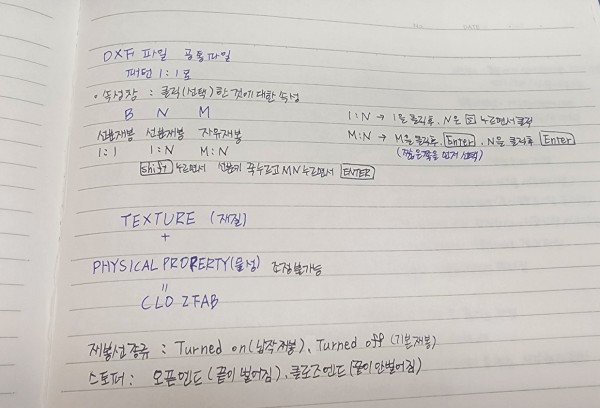 DXF 파일 공통파일
패턴 1:1로
• 속성창 : 클릭(선택)한 것에 대한 속성
B N M
선분재봉 선분재봉 자유재봉
1:1 1:N M:N
1:N → 1을 클릭후, N은 누르면서 클릭
M:N → M을 클릭후, Enter, N을 클릭후 Enter
(짧은쪽을 먼저 선택)
shift 누르면서 선분키 꾹누르고 MN누르면서 ENTER
TEXTURE (재질)
+
PHYSICAL PRORERTY(물성) 조정불가능
=
CLO ZFAB
재봉선종류 : Turned on(납작재봉), Turned off (기본재봉)
스토퍼 : 오픈엔드(끝이 벌어짐), 클로즈엔드(끝이 안벌어짐)